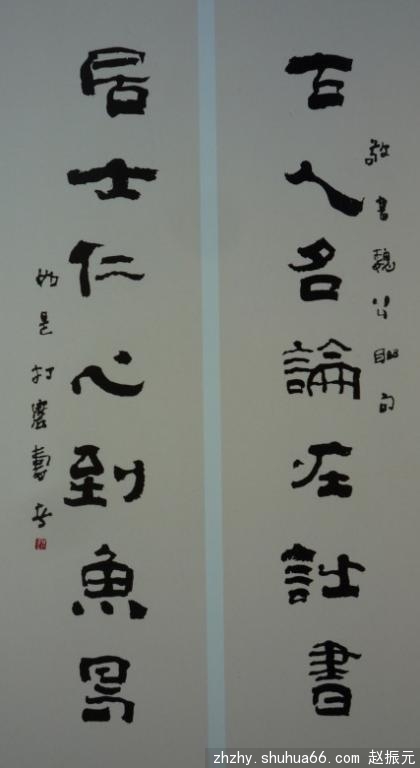 古人名論在詩書
敬書魏公聯句
居士仁心到魚鳥
zhzhy.shuhua66.com 赵振元